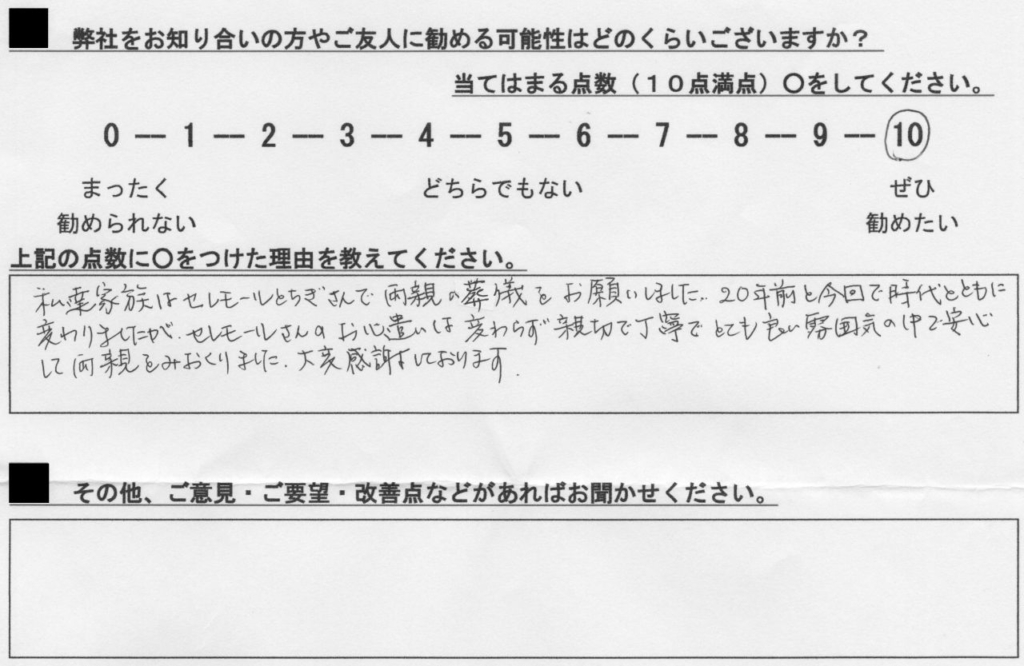 弊社をお知り合いの方やご友人に勧める可能性はどのくらいございますか？
当てはまる点数（１０点満点）〇をしてください。
0 ― 1 ― 2 ― 3 ― 4 ― 5 ― 6 ― 7 ― 8 ― 9 ― 10
まったく どちらでもない ぜひ
勧められない 勧めたい
上記の点数に〇をつけた理由を教えてください。
私達家族はセレモールとちぎさんで両親の葬儀をお願いしました。20年前と今回で時代とともに
変わりましたが、セレモールさんのお心遣いは変わらず親切で丁寧でとても良い雰囲気の中で安心
して両親をみおくりました。大変感謝しております。
その他、ご意見・ご要望・改善点などがあればお聞かせください。